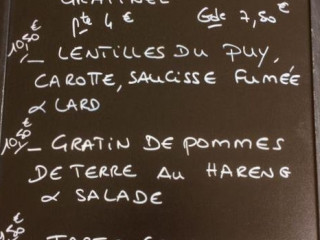 GRATINÉE
Pte 4 € Gde 7,50 €
10,50 € – LENTILLES DU PUY,
CAROTTE, SAUCISSE FUMÉE
& LARD
10,50 € – GRATIN DE POMMES
DE TERRE AU HARENG
& SALADE